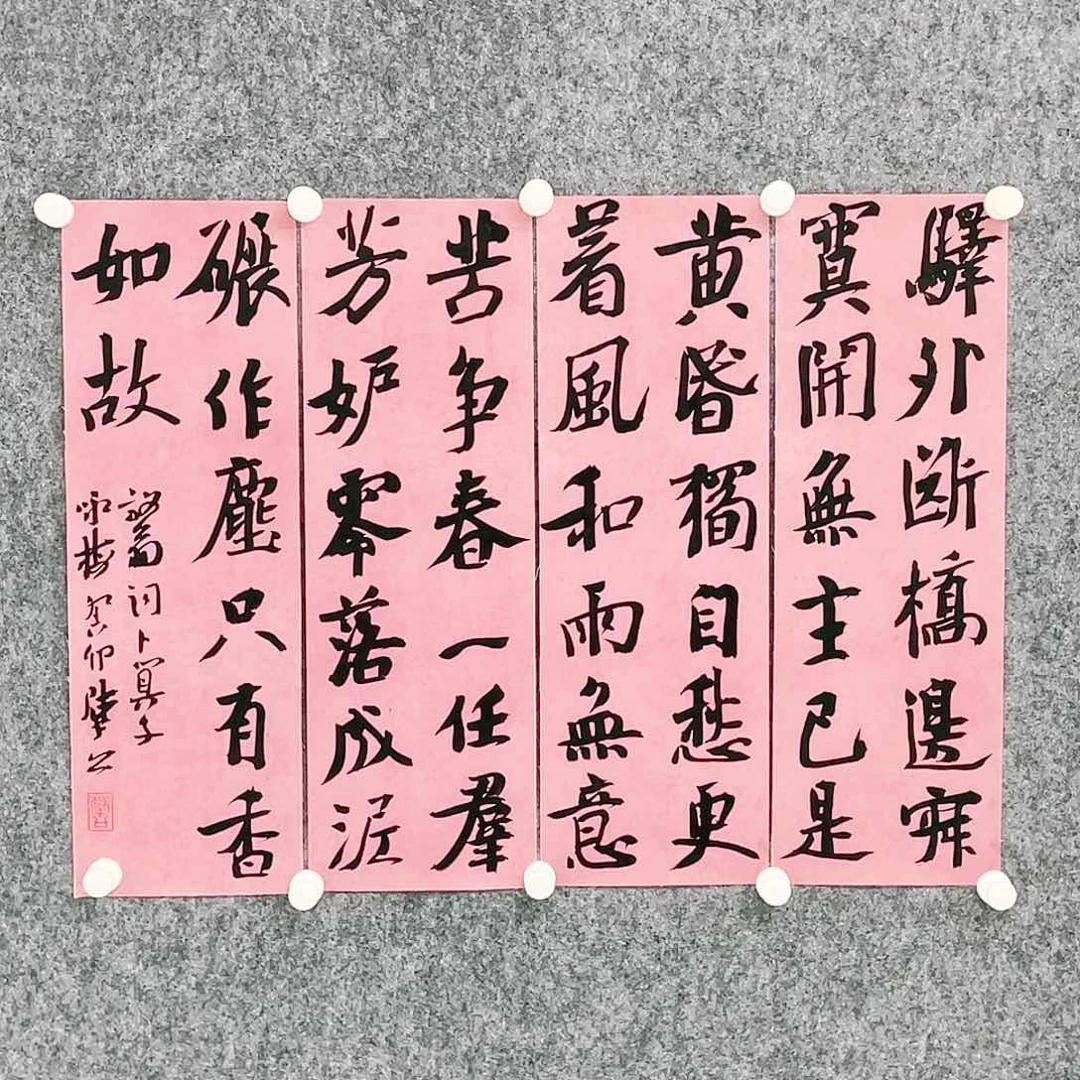 驛外断橋邊寂
寞開無主已是
黄昏獨自愁更
著風和雨無意
苦争春一任羣
芳妒零落成泥
碾作塵只有香
如故
放翁詞卜算子
咏梅 癸卯